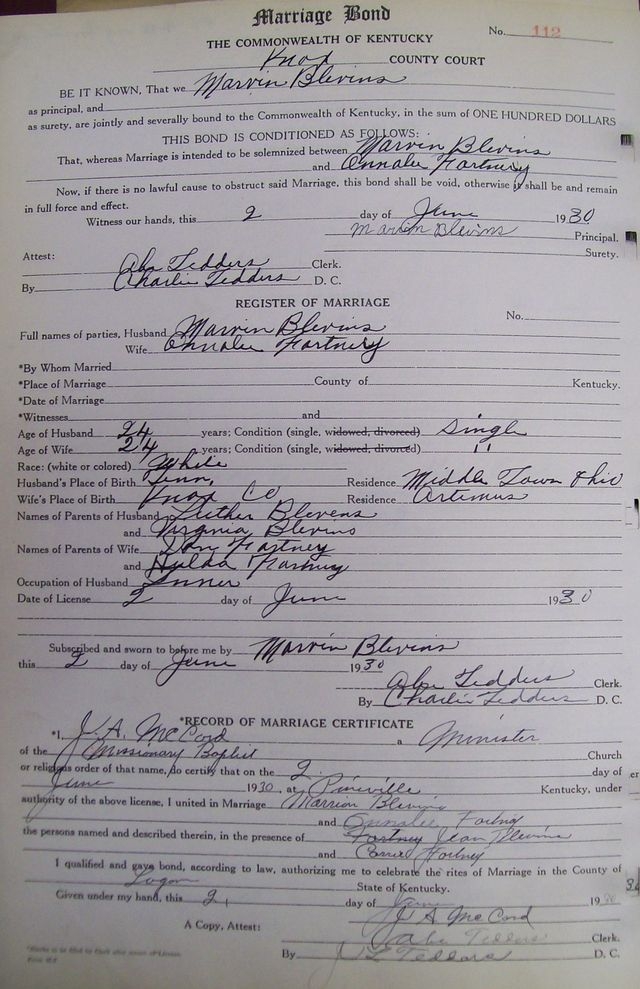 Marriage Bond
No. 112
THE COMMONWEALTH OF KENTUCKY
Knox COUNTY COURT
BE IT KNOWN, That we Marvin Blevins
as principal, and
as surety, are jointly and severally bound to the Commonwealth of Kentucky, in the sum of ONE HUNDRED DOLLARS
THIS BOND IS CONDITIONED AS FOLLOWS:
That, whereas Marriage is intended to be solemnized between Marvin Blevins
and Onnalee Fortney
Now, if there is no lawful cause to obstruct said Marriage, this bond shall be void, otherwise it shall be and remain
in full force and effect.
Witness our hands, this 2 day of June 1930
Marvin Blevins Principal.
Surety.
Attest:
Abe Tedders Clerk.
By Charlie Tedders D. C.
REGISTER OF MARRIAGE
No.
Full names of parties, Husband Marvin Blevins
Wife Onnalee Fortney
*By Whom Married
*Place of Marriage County of Kentucky.
*Date of Marriage
*Witnesses and
Age of Husband 24 years; Condition (single, widowed, divorced) Single
Age of Wife 24 years; Condition (single, widowed, divorced) "
Race: (white or colored) White
Husband's Place of Birth Tenn. Residence Middle Town Ohio
Wife's Place of Birth Knox Co Residence Artemus
Names of Parents of Husband Luther Blevens
and Virginia Blevins
Names of Parents of Wife Dan Fortney
and Hulda Fortney
Occupation of Husband
Date of License 2 day of June 1930
Subscribed and sworn to before me by Marvin Blevins
this 2 day of June 1930
Abe Tedders Clerk.
By Charlie Tedders D. C.
*RECORD OF MARRIAGE CERTIFICATE
*I, J. A. McCord a Minister
of the Missionary Baptist Church
or religious order of that name, do certify that on the 2 day of
June 1930, at Pineville Kentucky, under
authority of the above license, I united in Marriage Marrion Blevins
and Onnalee Fortney
the persons named and described therein, in the presence of Fortney Jean Blevins
and Carrie Fortney
I qualified and gave bond, according to law, authorizing me to celebrate the rites of Marriage in the County of
Logan State of Kentucky.
Given under my hand, this 2, day of June 1930
J A McCord
A Copy, Attest: Abe Tedders Clerk.
By J L Tedders D. C.